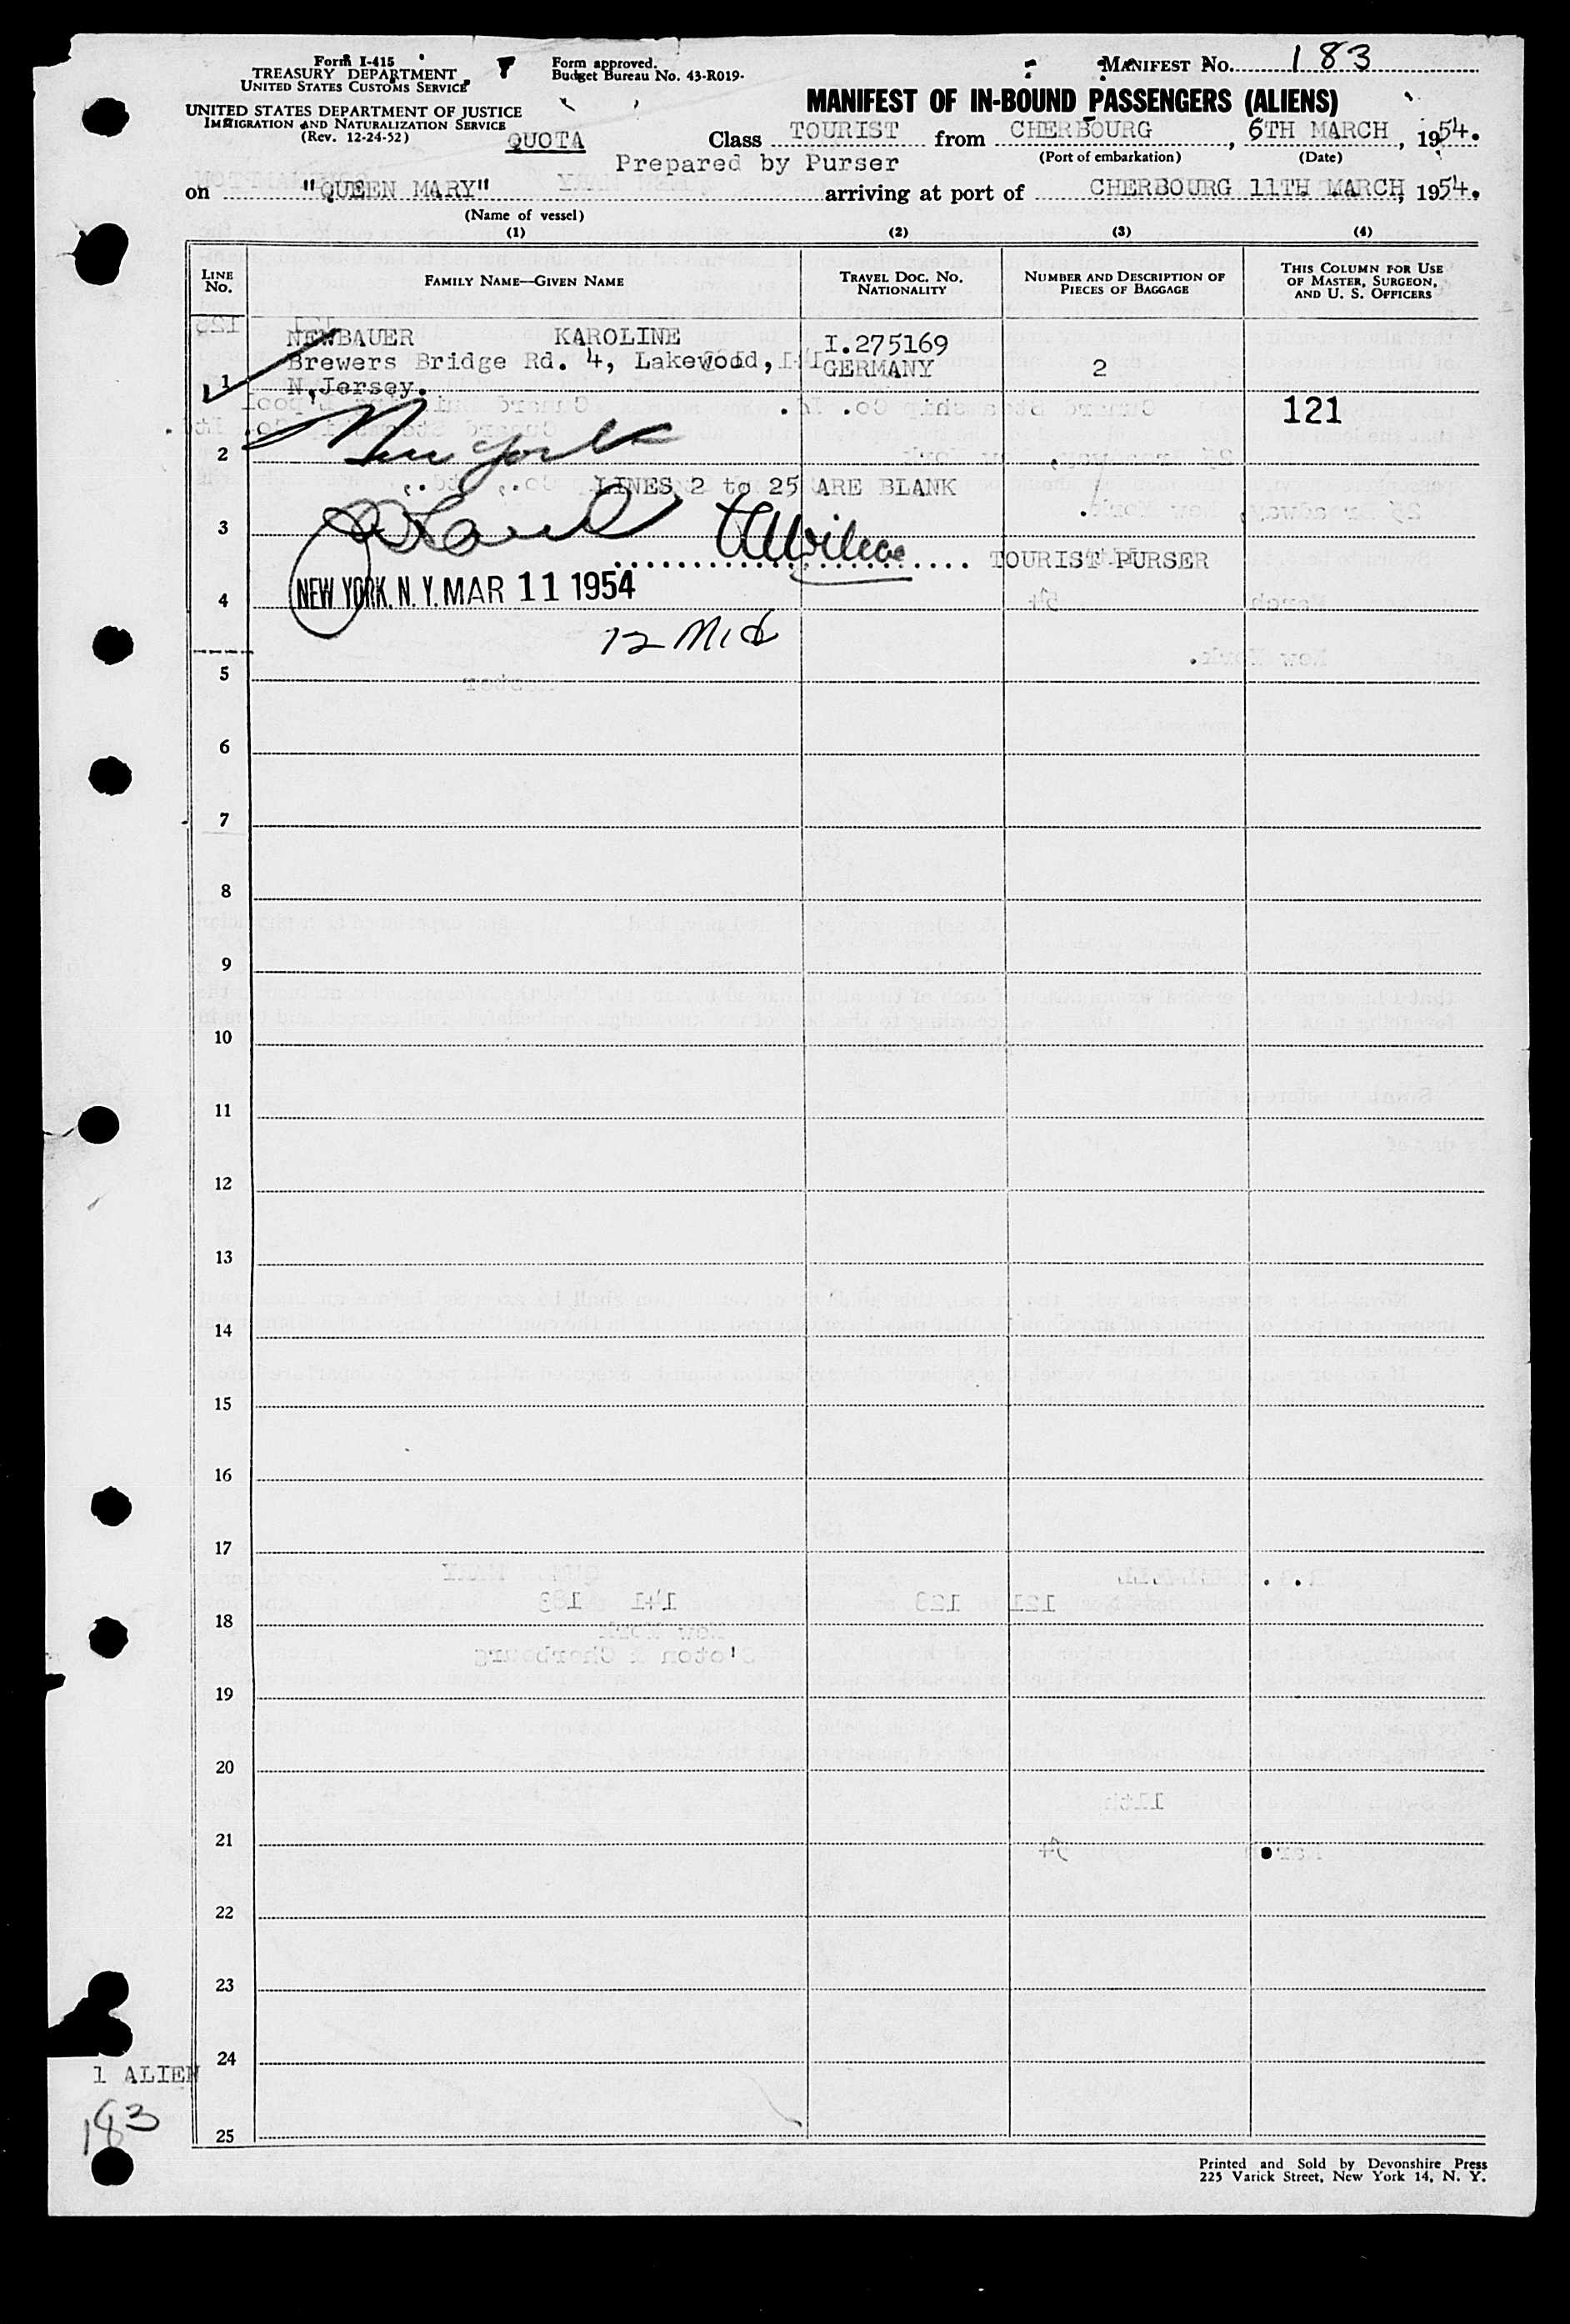 Form I-415
TREASURY DEPARTMENT
UNITED STATES CUSTOMS SERVICE
UNITED STATES DEPARTMENT OF JUSTICE
IMMIGRATION AND NATURALIZATION SERVICE
(Rev. 12-24-52)
Form approved.
Budget Bureau No. 43-R019-
MANIFEST NO. 183
MANIFEST OF IN-BOUND PASSENGERS (ALIENS)
QUOTA
Class TOURIST from CHERBOURG, 6TH MARCH, 1954.
(Port of embarkation) (Date)
Prepared by Purser
on "QUEEN MARY" arriving at port of CHERBOURG 11TH MARCH, 1954.
(Name of vessel)
(1) (2) (3) (4)
LINE No.
FAMILY NAME—GIVEN NAME
TRAVEL DOC. NO. NATIONALITY
NUMBER AND DESCRIPTION OF PIECES OF BAGGAGE
THIS COLUMN FOR USE OF MASTER, SURGEON, AND U. S. OFFICERS
NEWBAUER KAROLINE I.275169
Brewers Bridge Rd. 4, Lakewood, GERMANY 2
1 N,Jersey.
121
2 New York
LINES 2 to 25 ARE BLANK
3
TOURIST PURSER
4 NEW YORK. N. Y. MAR 11 1954
12 Mid
5
6
7
8
9
10
11
12
13
14
15
16
17
18
19
20
21
22
23
24
1 ALIEN
183
25
Printed and Sold by Devonshire Press
225 Varick Street, New York 14, N. Y.